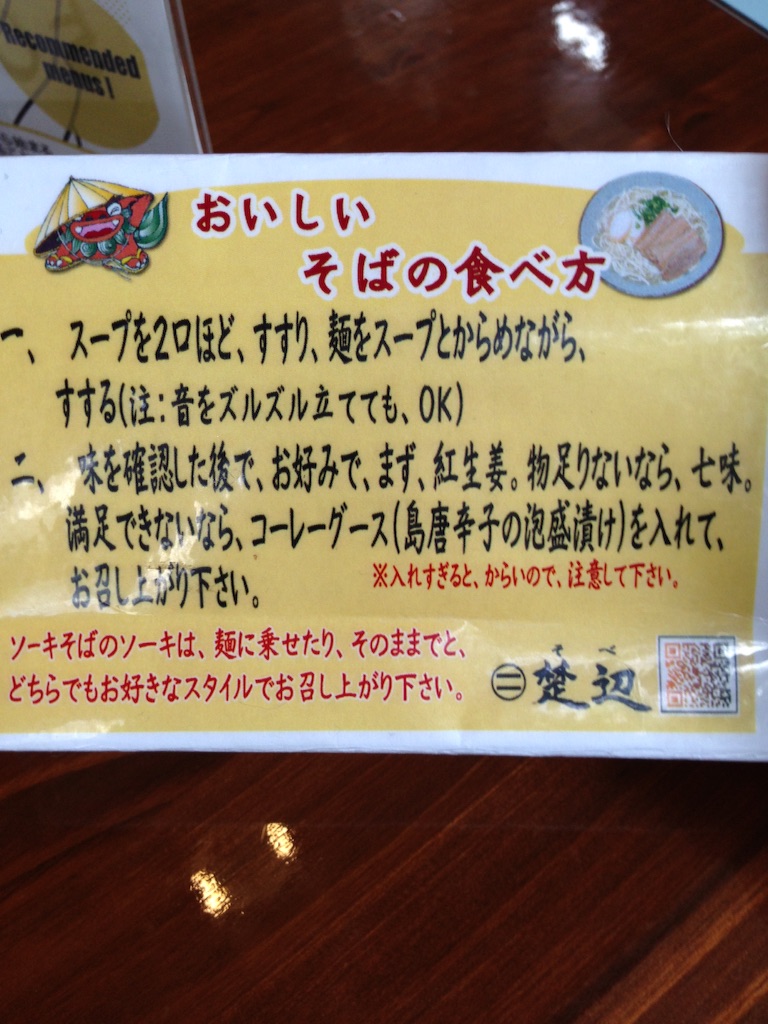 Recommended
menus!
おいしい
そばの食べ方
一、 スープを2口ほど、すすり、麺をスープとからめながら、
すする(注:音をズルズル立てても、OK)
二、 味を確認した後で、お好みで、まず、紅生姜。物足りないなら、七味。
満足できないなら、コーレーグース(島唐辛子の泡盛漬け)を入れて、
お召し上がり下さい。
※入れすぎると、からいので、注意して下さい。
ソーキそばのソーキは、麺に乗せたり、そのままでと、
どちらでもお好きなスタイルでお召し上がり下さい。
そ べ
㊁ 楚辺